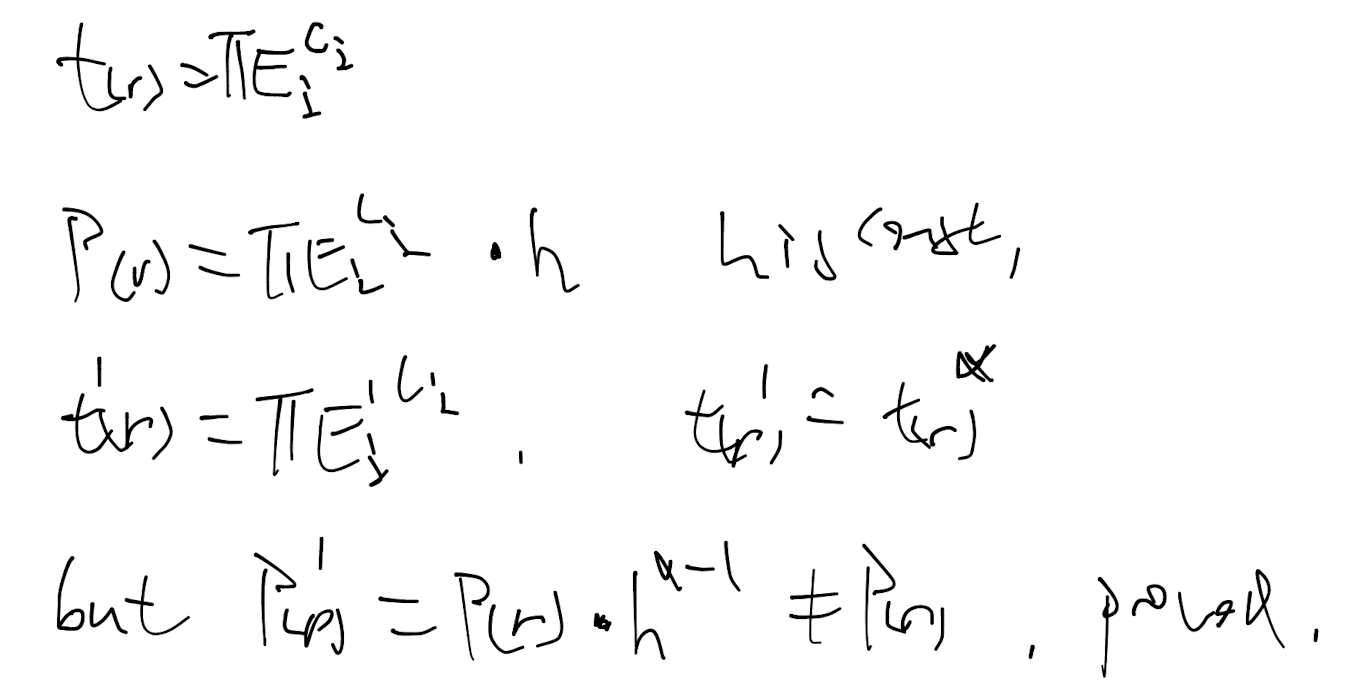 t(r) = ΠE_i^{c_i}
P(r) = ΠE_i^{c_i} · h h is const,
t'(r) = ΠE_i'^{c_i} , t(r)' = t(r)^α
but P'(r) = P(r) · h^{α-1} ≠ P(r) , proved .